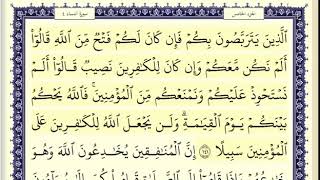 الجزء الخامس سورة النساء ٤
ٱلَّذِينَ يَتَرَبَّصُونَ بِكُمْ فَإِن كَانَ لَكُمْ فَتْحٌ مِّنَ ٱللَّهِ قَالُوٓا۟
أَلَمْ نَكُن مَّعَكُمْ وَإِن كَانَ لِلْكَٰفِرِينَ نَصِيبٌ قَالُوٓا۟ أَلَمْ
نَسْتَحْوِذْ عَلَيْكُمْ وَنَمْنَعْكُم مِّنَ ٱلْمُؤْمِنِينَ ۚ فَٱللَّهُ يَحْكُمُ
بَيْنَكُمْ يَوْمَ ٱلْقِيَٰمَةِ ۗ وَلَن يَجْعَلَ ٱللَّهُ لِلْكَٰفِرِينَ عَلَى
ٱلْمُؤْمِنِينَ سَبِيلًا ١٤١ إِنَّ ٱلْمُنَٰفِقِينَ يُخَٰدِعُونَ ٱللَّهَ وَهُوَ
خَٰدِعُهُمْ وَإِذَا قَامُوٓا۟ إِلَى ٱلصَّلَوٰةِ قَامُوا۟ كُسَالَىٰ يُرَآءُونَ